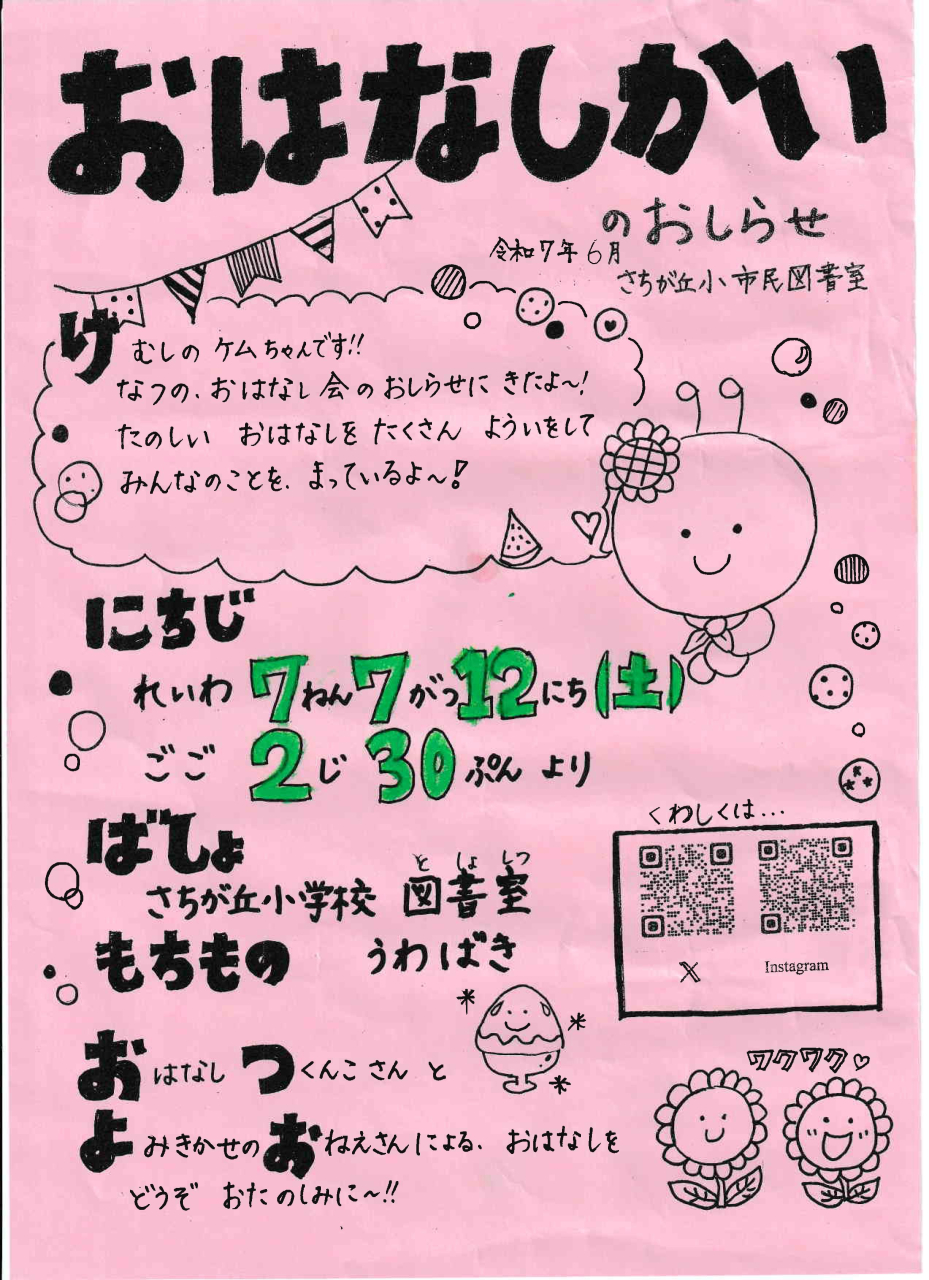 おはなしかい
のおしらせ
令和7年6月
さちが丘小市民図書室
けむしの ケムちゃんです!!
なつの、おはなし会のおしらせに きたよ〜!
たのしい おはなしを たくさん よういをして
みんなのことを、まっているよ〜!
にちじ
れいわ 7ねん7がつ12にち(土)
ごご 2じ 30ぷん より
ばしょ
さちが丘小学校 図書室
としょしつ
もちもの うわばき
くわしくは...
X Instagram
おはなし つくんこさん と
よみきかせの おねえさんによる、 おはなしを
どうぞ おたのしみに〜!!
ワクワク♡